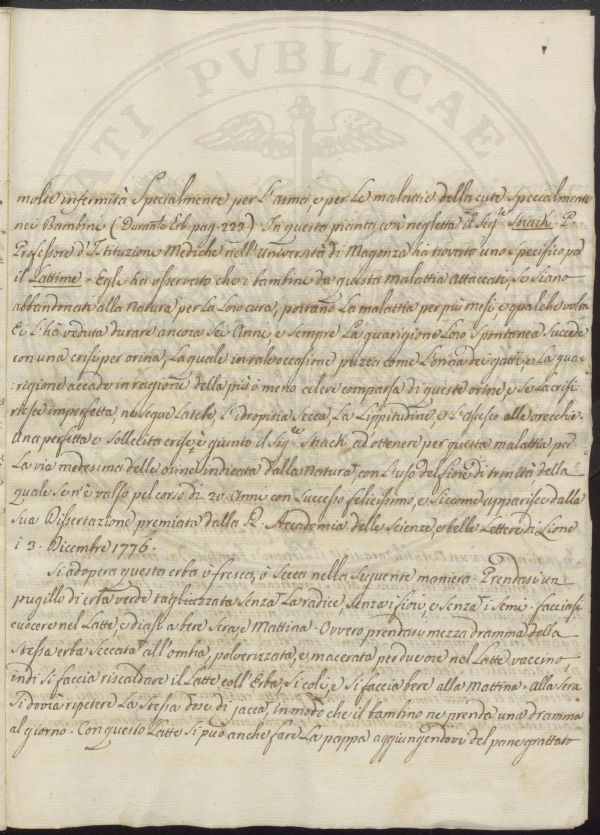 ATI PVBLICAE
molte infermità Specialmente per l'asma, e per le malattie della cute specialmente
nei Bambini (Durante Erb. pag. 222.) In questa pianta così negletta il Sig.re Strack. P.
Professore d'Istituzioni Mediche nell'Università di Magonza ha trovato uno specifico per
il Lattime. Egli ha osservato che i bambini da questa malattia attaccati, se siano
abbandonati alla Natura per la loro cura, portano la malattia per più mesi, e qualche volta
Ei l'ha veduta durare ancora sei Anni, e sempre la guarigione loro spontanea succede
con una crisi per orina, la quale in tale occasione puzza come l'orina de gatti, e la gua-
:rigione accade in ragione della più o meno celere comparsa di queste orine, e se la crisi
riesce imperfetta, ne segue la tiche, l'idropisia secca, la Lippitudine, e l'ascesso alle orecchie.
Una perfetta e sollecita crise, è giunto il Sig.re Strack ad ottenere per questa malattia per
la via medesima delle orine indicata dalla Natura, con l'uso del fiore di trinità della
quale se n'è valso pel corso di 20. Anni con Successo felicissimo, e siccome apparisce dalla
sua Dissertazione premiata dalla R. Accademia delle Scienze, e belle Lettere di Lione
i 3. Dicembre 1776.
Si adopera questa erba o fresca, o secca nella seguente maniera. Prendasi un
pugillo di erba verde tagliuzzata senza la radice, senza i fiori, e senza i semi. facciasi
cuocere nel Latte, e diasi a bere sera, e Mattina. Ovvero, prendasi mezza dramma della
stessa erba seccata all'ombra, polverizzata, e macerata per due ore nel Latte vaccino,
indi si faccia riscaldare il Latte coll'Erba, si coli, e si faccia bere alla mattina. Alla sera
si dovrà ripetere la stessa dose di jacea, in modo che il bambino ne prenda una dramma
al giorno. Con questo Latte si può anche fare la pappa aggiungendovi del pane grattato